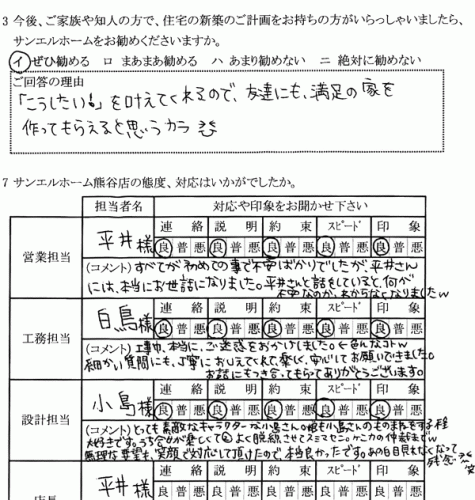 3 今後、ご家族や知人の方で、住宅の新築のご計画をお持ちの方がいらっしゃいましたら、
サンエルホームをお勧めくださいますか。
イ ぜひ勧める ロ まあまあ勧める ハ あまり勧めない ニ 絶対に勧めない
ご回答の理由
「こうしたい!」を叶えてくれるので、友達にも、満足の家を
作ってもらえると思うカラ
7 サンエルホーム熊谷店の態度、対応はいかがでしたか。
担当者名 対応や印象をお聞かせ下さい
営業担当 平井様
連絡 説明 約束 スピード 印象
良 普 悪 良 普 悪 良 普 悪 良 普 悪 良 普 悪
(コメント) すべてが初めての事で不安ばかりでしたが、平井さん
には、本当にお世話になりました。平井さんと話をしていると、何が
不安なのか、わからなくなりましたw
工務担当 白鳥様
連絡 説明 約束 スピード 印象
良 普 悪 良 普 悪 良 普 悪 良 普 悪 良 普 悪
(コメント) 工事中、本当に、ご迷惑をおかけしました。←色んなコトw
細かい質問にも、丁寧におしえてくれて、楽しく、安心してお願いできました。
お話にもつき合ってもらってありがとうございます。
設計担当 小島様
連絡 説明 約束 スピード 印象
良 普 悪 良 普 悪 良 普 悪 良 普 悪 良 普 悪
(コメント) とっても素敵なキャラクターな小島さん。小島さんのものまねをする
大好きです。うち合せが楽しくてよく脱線させてスミマセン。ケンカの仲裁までw
無理な要望も、笑顔で対応して頂けたので、本当良かったです。あの白目見れなくなって
残念
店長 平井様
連絡 説明 約束 スピード 印象
良 普 悪 良 普 悪 良 普 悪 良 普 悪 良 普 悪